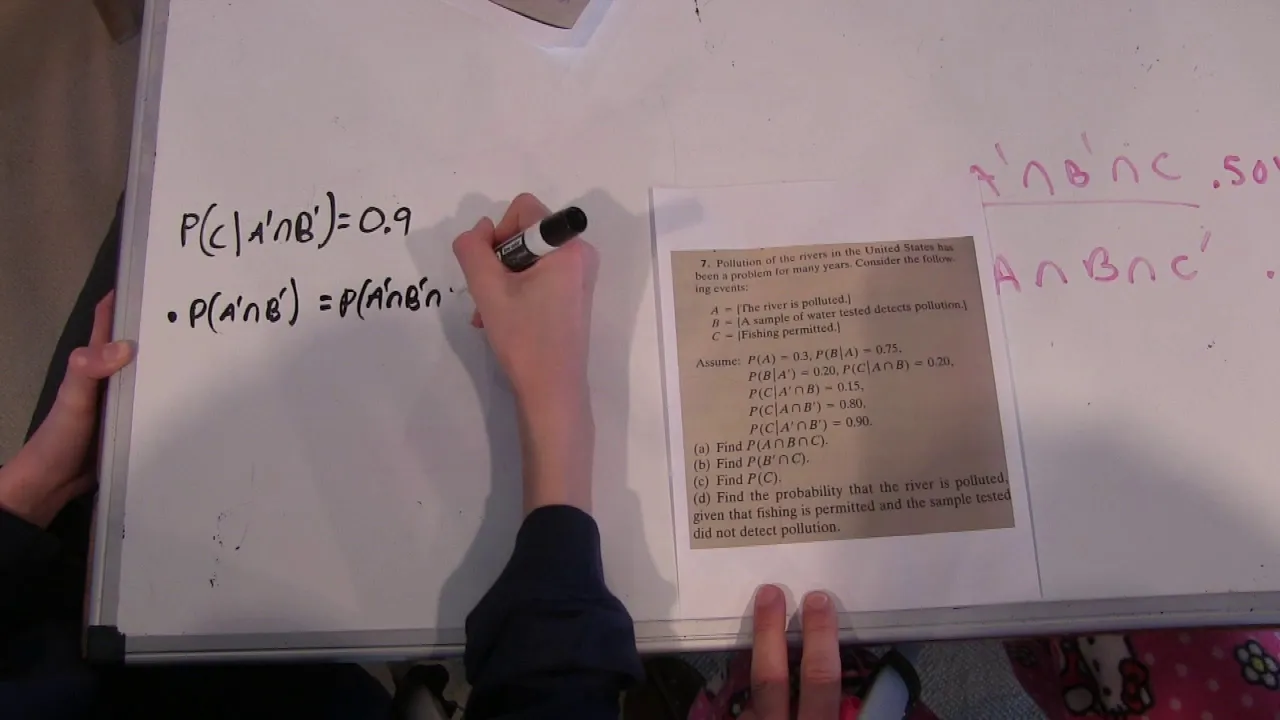 P(C|A'∩B')=0.9
• P(A'∩B') = P(A'∩B'∩
A'∩B'∩C .504
A∩B∩C' .
7. Pollution of the rivers in the United States has
been a problem for many years. Consider the follow-
ing events:
A = {The river is polluted.}
B = {A sample of water tested detects pollution.}
C = {Fishing permitted.}
Assume: P(A) = 0.3, P(B|A) = 0.75,
P(B|A') = 0.20, P(C|A∩B) = 0.20,
P(C|A'∩B) = 0.15,
P(C|A∩B') = 0.80,
P(C|A'∩B') = 0.90.
(a) Find P(A∩B∩C).
(b) Find P(B'∩C).
(c) Find P(C).
(d) Find the probability that the river is polluted,
given that fishing is permitted and the sample tested
did not detect pollution.